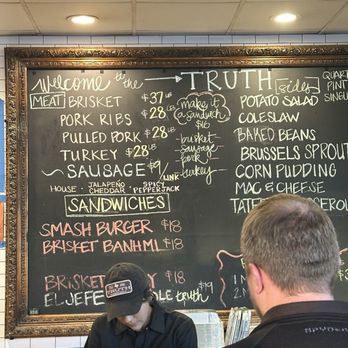 Welcome to the → TRUTH
MEAT
BRISKET $37 lb
PORK RIBS $28 lb
PULLED PORK $28 lb
TURKEY $28 lb
SAUSAGE $9 / LINK
HOUSE - JALAPEÑO CHEDDAR - SPICY PEPPERJACK
make it a sandwich
$16
brisket
sausage
pork
turkey
sides
QUART
PINT
SINGL
POTATO SALAD
COLESLAW
BAKED BEANS
BRUSSELS SPROUT
CORN PUDDING
MAC & CHEESE
SANDWICHES
SMASH BURGER $18
BRISKET BANH MI $18
BRISKET $18
EL JEFE truth $19